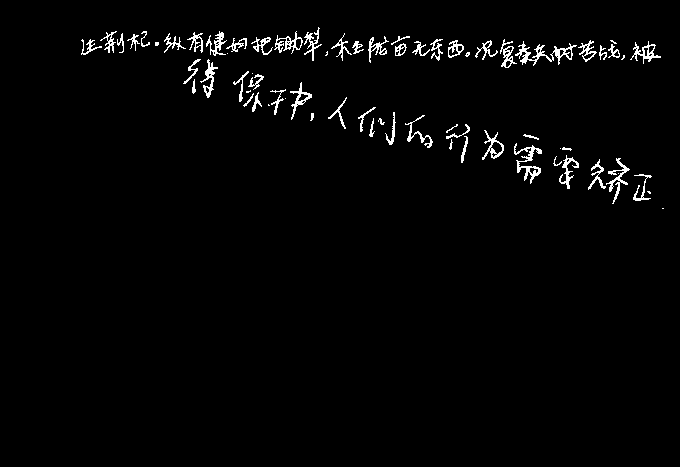 生荆杞。纵有健妇把锄犁,禾生陇亩无东西。况复秦兵耐苦战,被
待保护,人们的行为需要矫正.